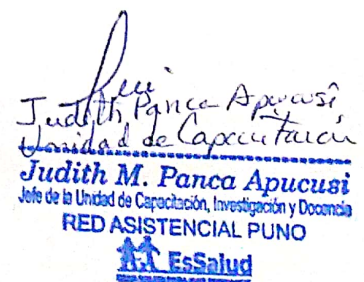 Judith Panca Apucusi
Unidad de Capacitación
Judith M. Panca Apucusi
Jefe de la Unidad de Capacitación, Investigación y Docencia
RED ASISTENCIAL PUNO
EsSalud